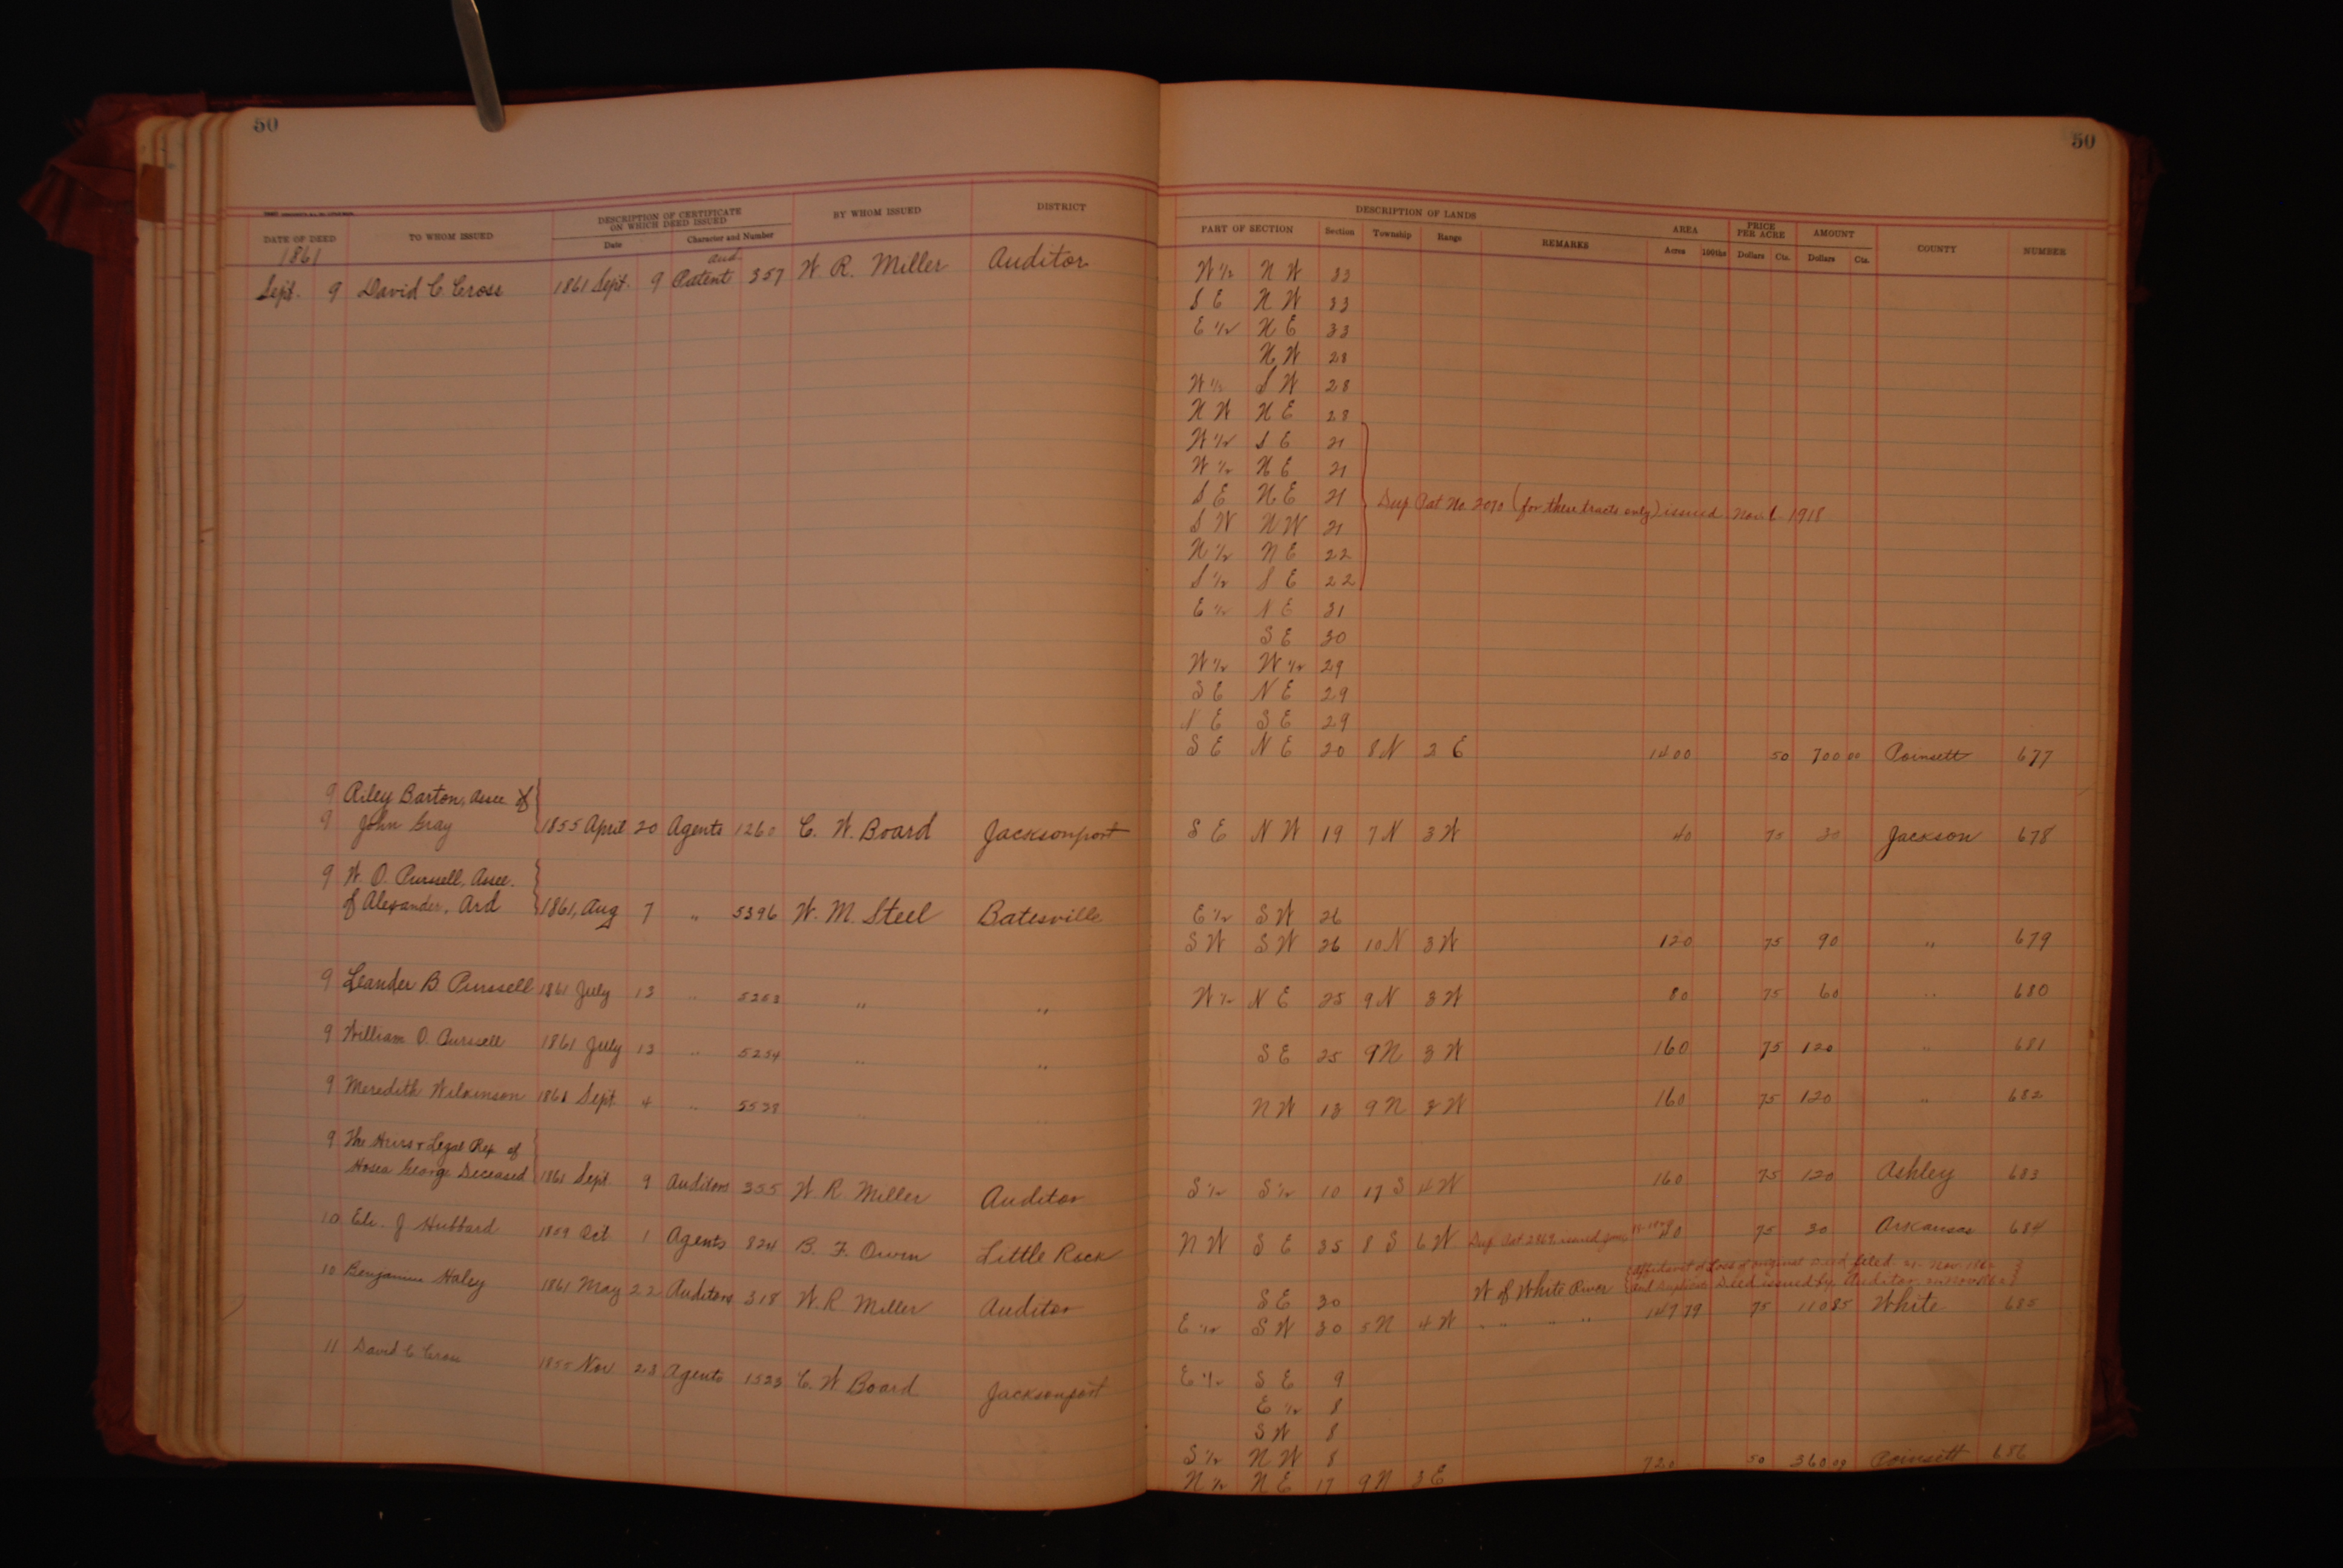 50
50
DESCRIPTION OF CERTIFICATE
ON WHICH DEED ISSUED
BY WHOM ISSUED
DISTRICT
DATE OF DEED
TO WHOM ISSUED
Date
Character and Number
DESCRIPTION OF LANDS
PART OF SECTION
Section
Township
Range
REMARKS
AREA
Acres
100ths
PRICE
PER ACRE
Dollars
Cts.
AMOUNT
Dollars
Cts.
COUNTY
NUMBER
1861
Aud.
Sept. 9 David C Cross 1861 Sept. 9 Patent 357 W R. Miller Auditor W 1/2 N W 33
S E N W 33
E 1/2 N E 33
N W 28
W 1/2 S W 28
N W N E 28
W 1/2 S E 21
W 1/2 N E 21
S E N E 21 Dup Pat No. (for these tracts only) issued Nov. 1918
S W N W 21
N 1/2 N E 22
S 1/2 S E 22
E 1/2 N E 31
S E 30
W 1/2 W 1/2 29
S E N E 29
N E S E 29
S E N E 20 8 N 2 E 1400 50 700 00 Poinsett 677
9 Riley Barton, Assee of
9 John Gray 1855 April 20 Agents 1260 C. W. Board Jacksonport S E N W 19 7 N 3 W 40 75 30 Jackson 678
9 W. O. Purssell, Assee.
of Alexander, Ard 1861, Aug 7 " 5396 W. M. Steel Batesville E 1/2 S W 26
S W S W 26 10 N 3 W 120 75 90 " 679
9 Leander B Purssell 1861 July 13 " 5253 " " W 1/2 N E 25 9 N 3 W 80 75 60 " 680
9 William O. Purssell 1861 July 13 " 5254 " " S E 25 9 N 3 W 160 75 120 " 681
9 Meredith Wilkinson 1861 Sept 4 " 5538 " N W 13 9 N 3 W 160 75 120 " 682
9 The Heirs & Legal Rep of
Hosea George Deceased 1861 Sept 9 Auditors 355 W R Miller Auditor S 1/2 S 1/2 10 17 S 4 W 160 75 120 Ashley 683
10 Eli. J Hubbard 1859 Oct 1 Agents 824 B. F. Owen Little Rock N W S E 35 8 S 6 W Dup Pat 2869 issued 40 75 30 Arkansas 684
Affidavit of loss of original deed filed 21 Nov.
10 Benjamin Haley 1861 May 22 Auditors 318 W. R Miller Auditor S E 30 W of White River and Duplicate Deed issued by Auditor
E 1/2 S W 30 5 N 4 W " " " " 147 79 75 110 85 White 685
11 David C Cross 1855 Nov 23 Agents 1523 C. W Board Jacksonport E 1/2 S E 9
E 1/2 8
S W 8
S 1/2 N W 8
N 1/2 N E 17 9 N 3 E 720 50 360 00 Poinsett 686